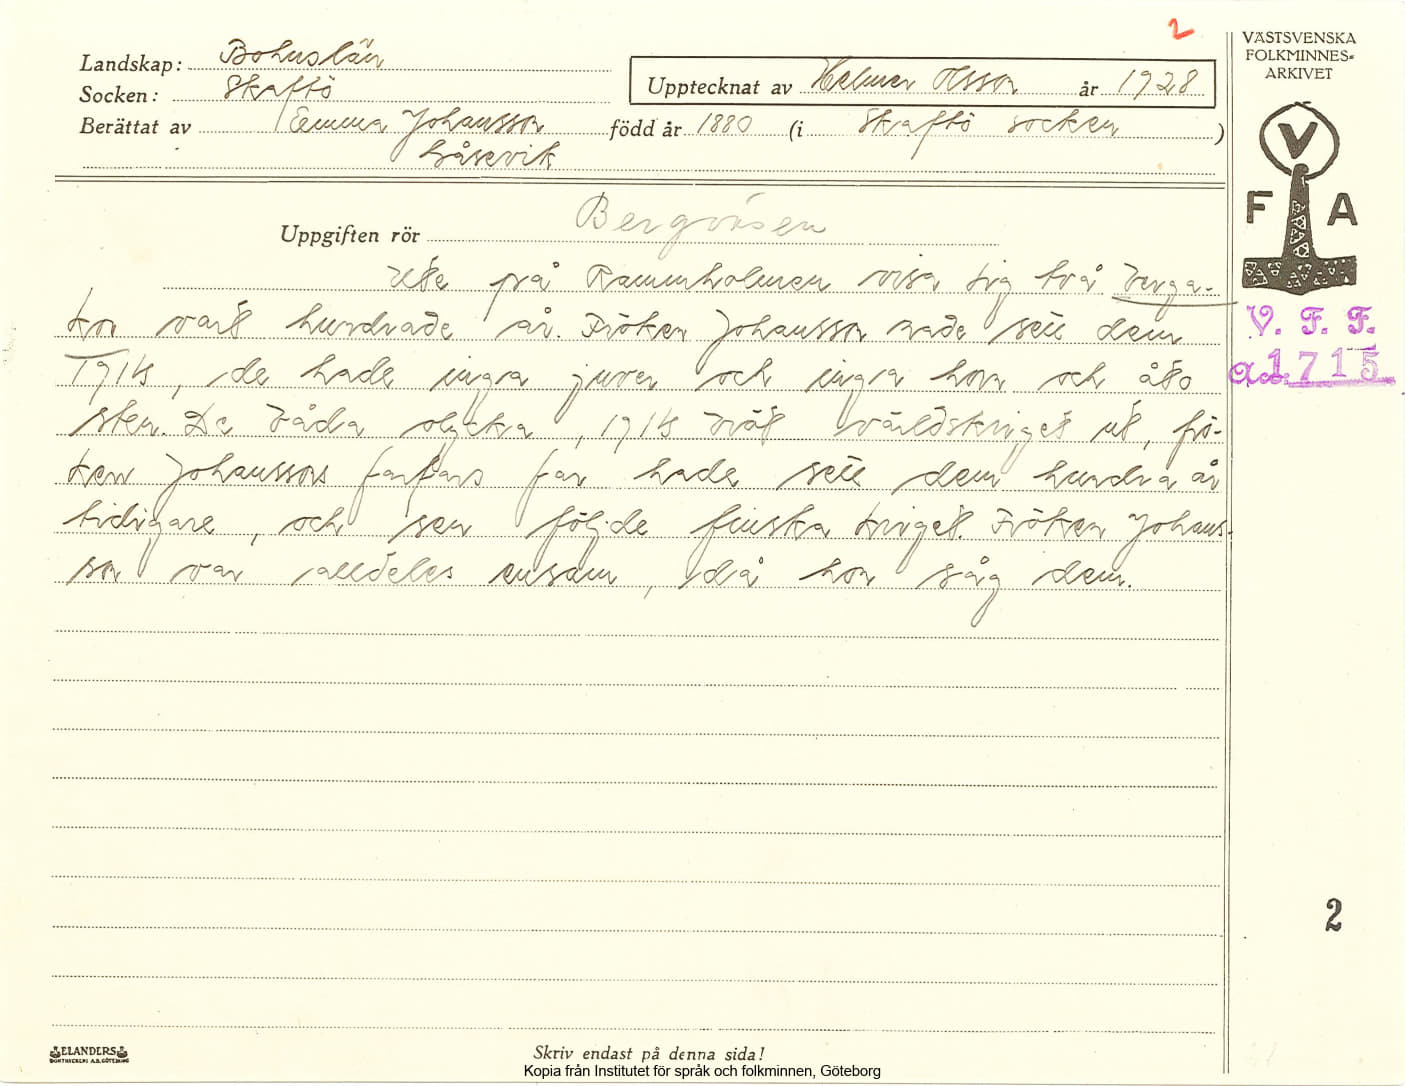 2
VÄSTSVENSKA
FOLKMINNES-
ARKIVET
Landskap: Bohuslän
Socken: Skaftö
Upptecknat av Helmer Olsson år 1928
Berättat av Emma Johansson född år 1880 (i Skaftö socken)
Gåsevik
V
F A
Uppgiften rör Bergväsen
Ute på Rammholmen visa sig två berga-
kor vart hundrade år. Fröken Johansson hade sett dem
1914, de hade inga juver och inga horn och åto
sten. De båda olycka, 1914 bröt världskriget ut, frö-
ken Johanssons farfars far hade sett dem hundra år
tidigare, och sen följde finska kriget. Fröken Johans-
son var alldeles ensam, då hon såg dem.
V. F. F.
Acc. 1715
2
ELANDERS
BOKTRYCKERI A.B. GÖTEBORG
Skriv endast på denna sida!
Kopia från Institutet för språk och folkminnen, Göteborg